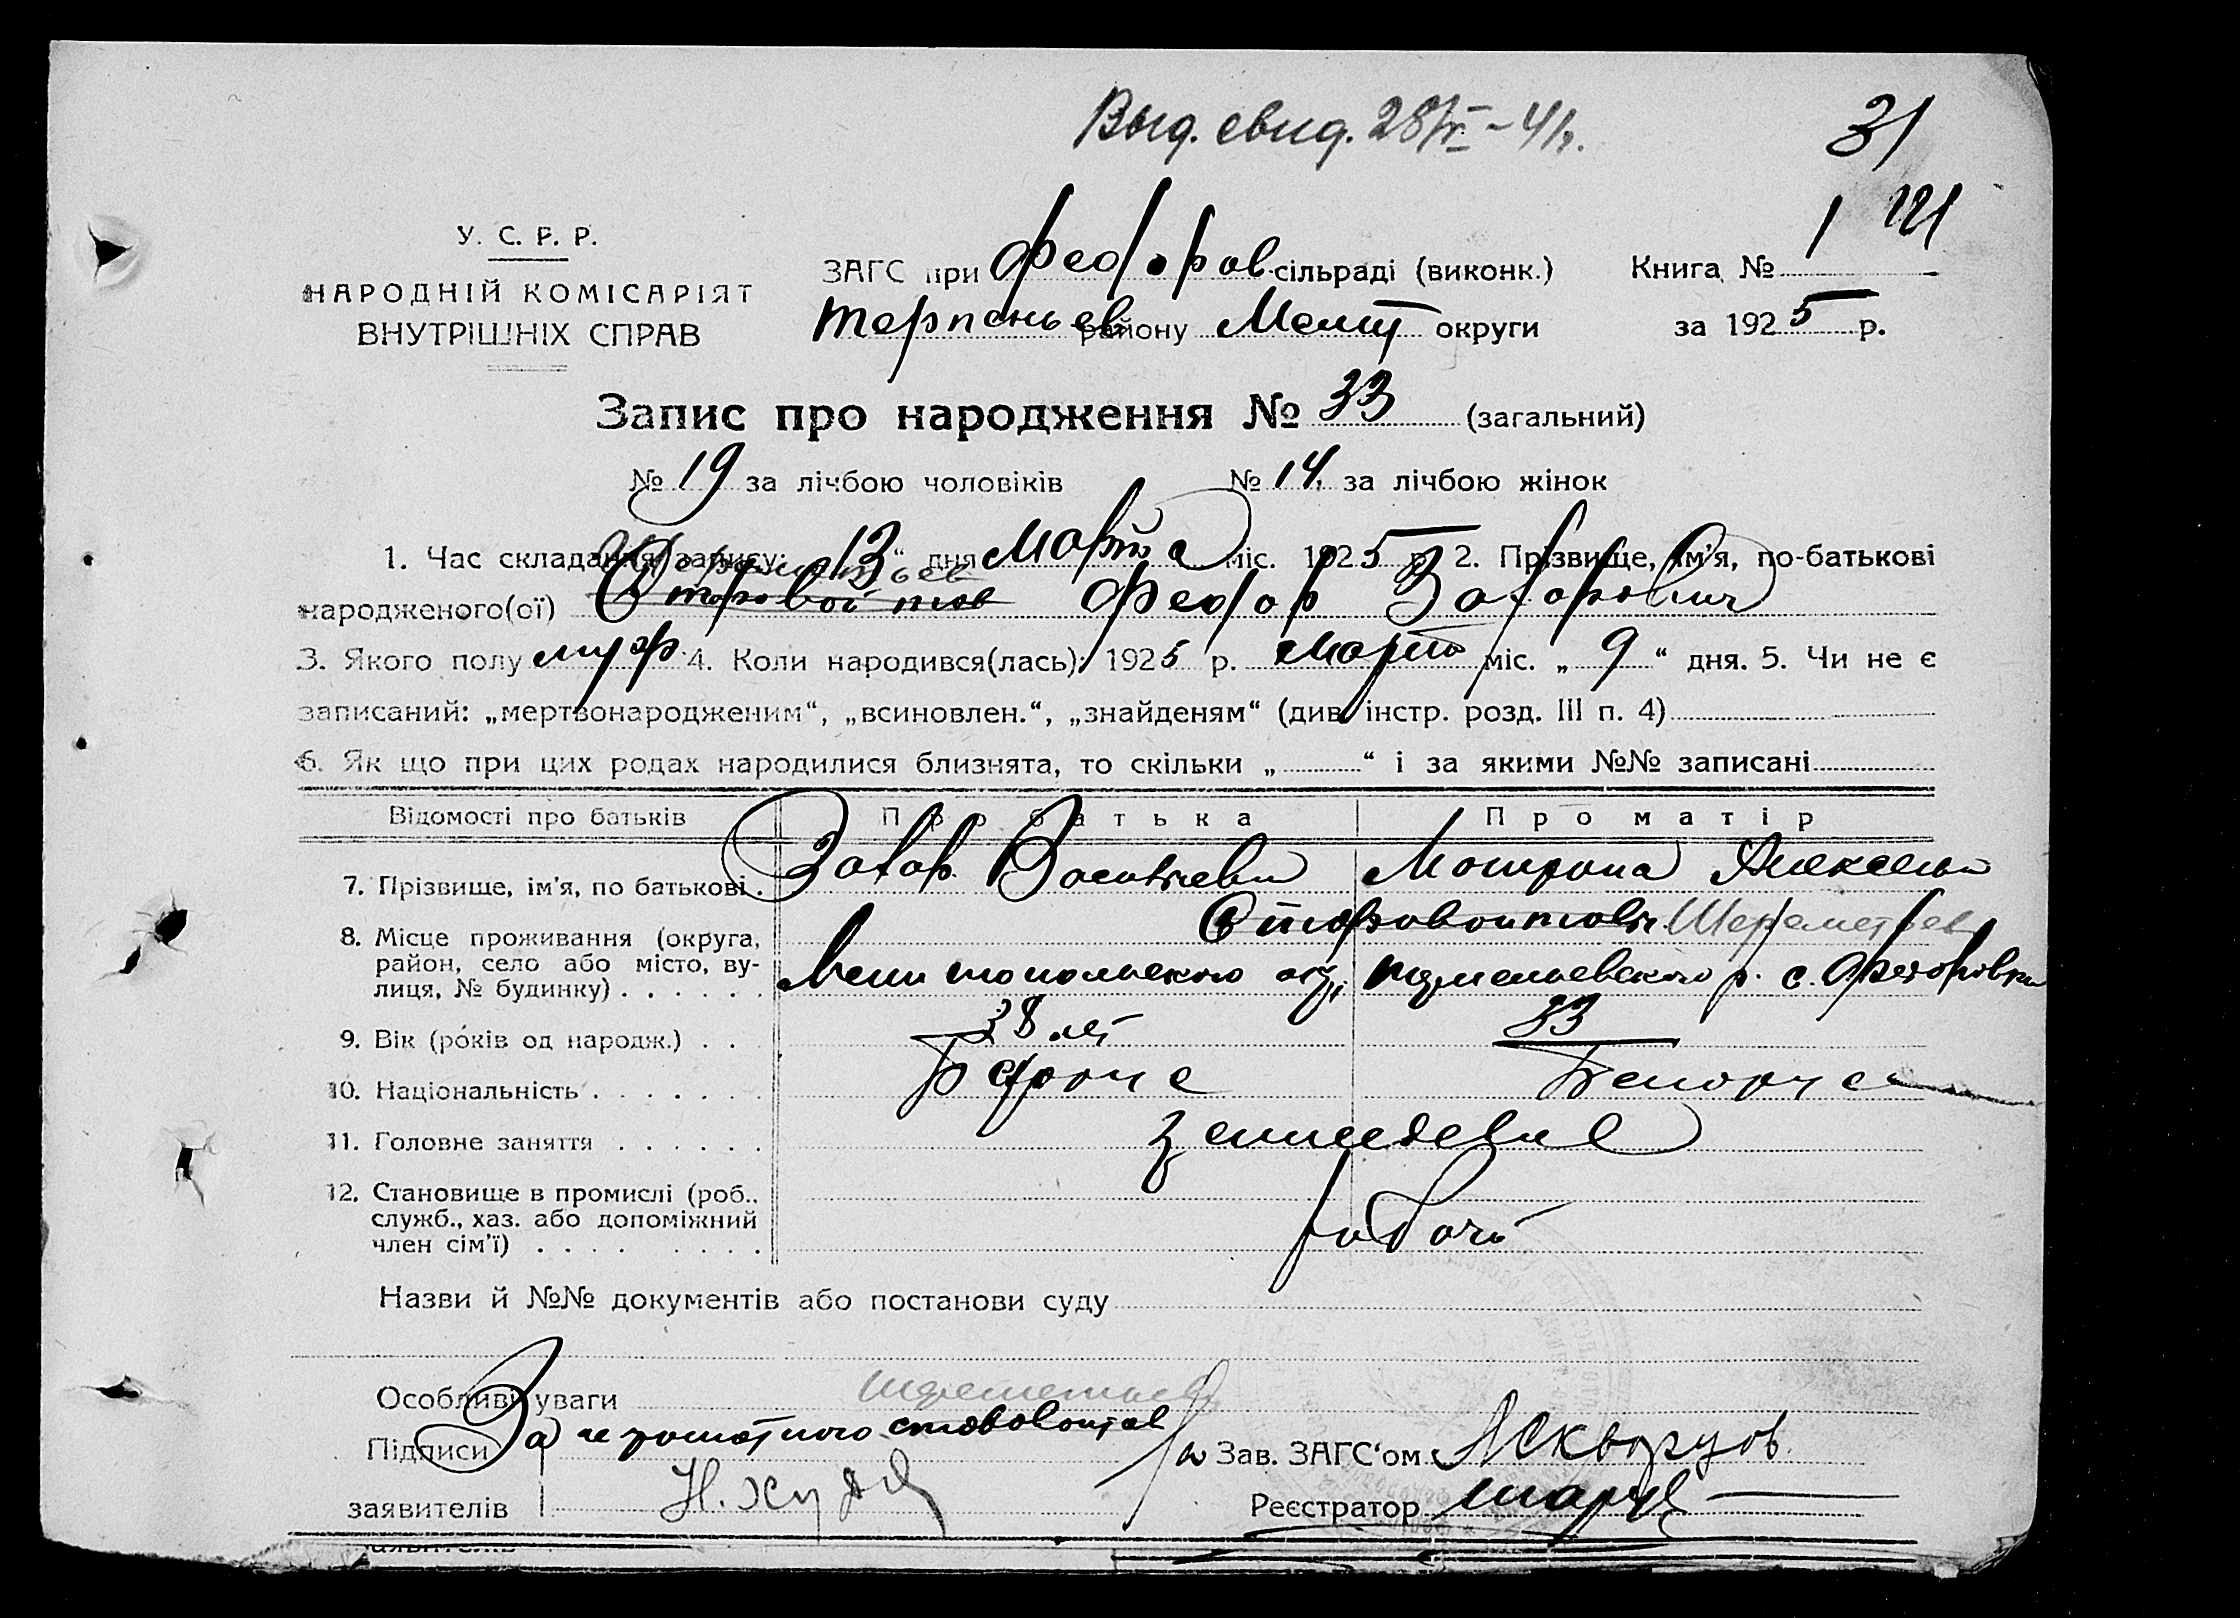 Выд. свид. 28/VI-41г.
31
1 121
У. С. Р. Р.
НАРОДНІЙ КОМІСАРІЯТ
ВНУТРІШНІХ СПРАВ
ЗАГС при Федоров. сільраді (виконк.) Книга №
Терпеньев району Мелит округи за 1925 р.
Запис про народження № 33 (загальний)
№ 19 за лічбою чоловіків № 14 за лічбою жінок
1. Час складання запису: 13 " дня Марта міс. 1925 р. 2. Прізвище, ім'я, по-батькові
народженого(ої) Федор Захарович
3. Якого полу муж. 4. Коли народився(лась): 1925 р. март міс. „ 9 " дня. 5. Чи не є
записаний: „мертвонародженим", „всиновлен.", „знайденям" (див. інстр. розд. III п. 4)
6. Як що при цих родах народилися близнята, то скільки „ " і за якими №№ записані
Відомості про батьків Про батька Про матір
7. Прізвище, ім'я, по батькові . Захар Васильеви Мотрона Алексеевн
Шереметьев
8. Місце проживання (округа,
район, село або місто, ву-
лиця, № будинку) . . . . . . Мелитопольского окр. терпеньевского р. с. Федоровка
9. Вік (ро́ків од народж.) . . 38 лет 33
10. Національність . . . . . . .
11. Головне заняття . . . . . . земледелие
12. Становище в промислі (роб.,
служб., хаз. або допоміжний
член сім'ї) . . . . . . . . рабочи
Назви й №№ документів або постанови суду
Особливі уваги Шереметьев
Підписи За не грамотного
заявителів Н. Худя
Зав. ЗАГС'ом Скворцов
Реєстратор